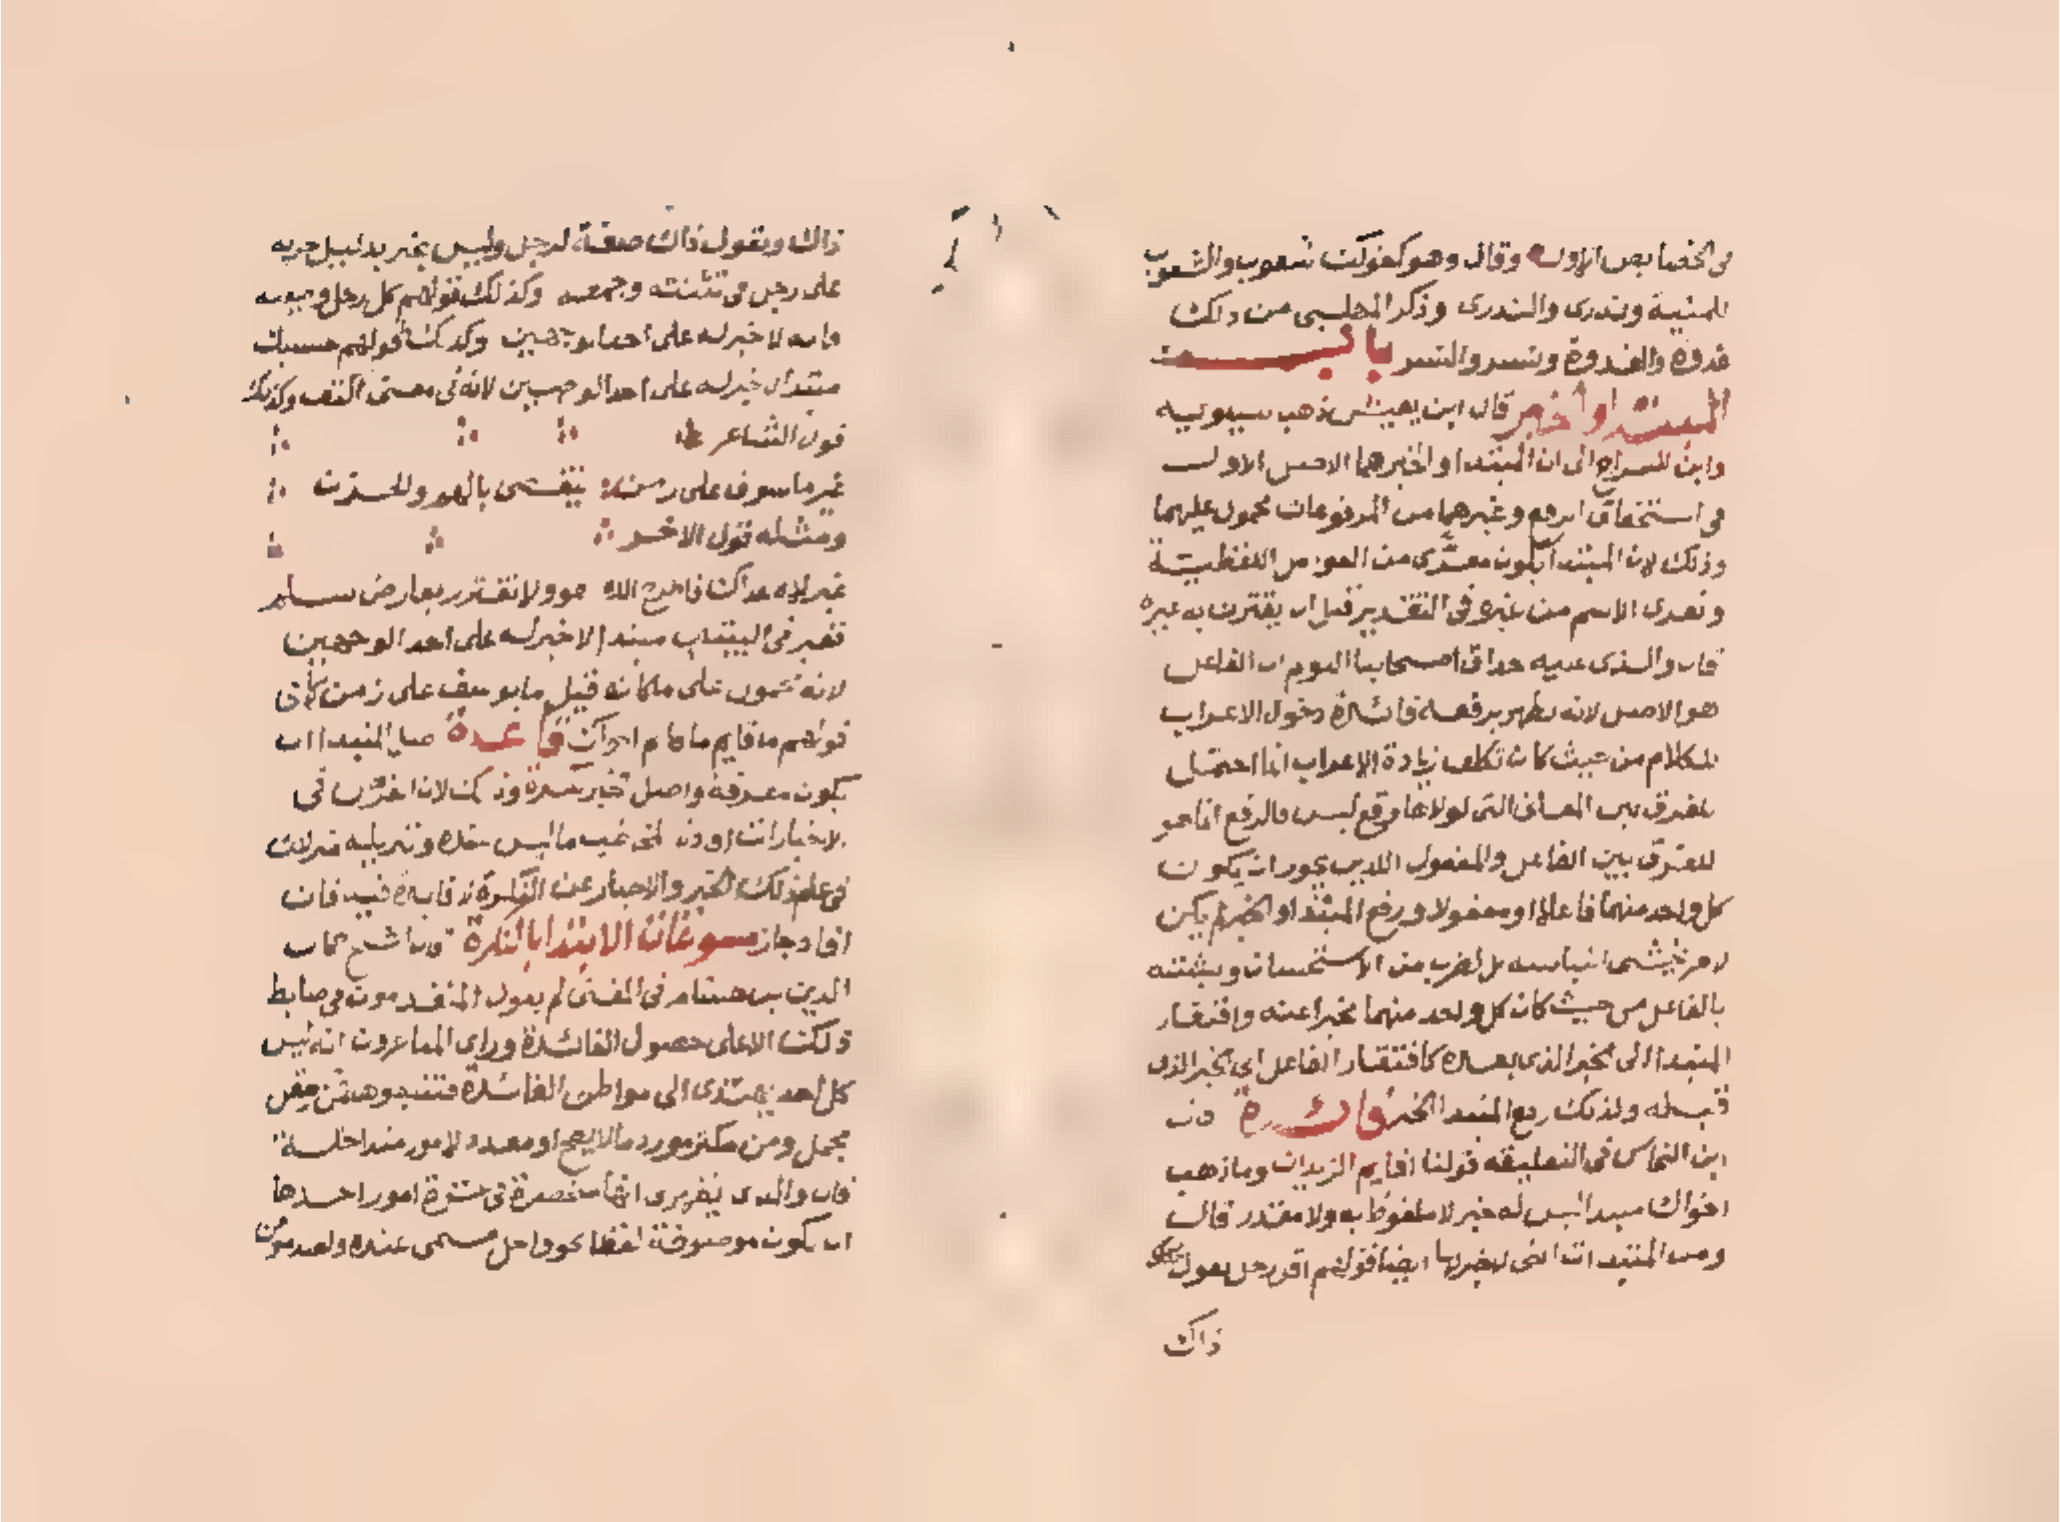 في الخصايص الاول وقال وهو كقولك شعوب والشعوب
للمنية وندرى والندرى وذكر المهلبي من ذلك
غدوة والغدوة ونسر والنسر باب
المبتدا والخبر قال ابن يعيش ذهب سيبويه
وابن السراج الى ان المبتدا والخبر هما الاصل الاول
في استحقاق الرفع وغيرهما من المرفوعات محمول عليهما
وذلك لان المبتدا يكون معرى من العوامل اللفظية
وتعرى الاسم من غيره في التقدير قبل ان يقترن به غيره
قال والذى عليه حذاق اصحابنا اليوم ان الفاعل
هو الاصل لانه يظهر برفعه فائدة دخول الاعراب
للكلام من حيث كان تكلف زيادة الاعراب انما احتمل
للفرق بين المعانى التى لولاها وقع لبس فالرفع انما هو
للفرق بين الفاعل والمفعول اللذين يجوز ان يكون
كل واحد منهما فاعلا او مفعولا ورفع المبتدا والخبر لم يكن
لامر يخشى التباسه بل لضرب من الاستحسان وتشبيه
بالفاعل من حيث كان كل واحد منهما مخبرا عنه وافتقار
المبتدا الى الخبر الذى بعده كافتقار الفاعل الى الخبر الذى
قبله ولذلك رفع المبتدا والخبر فائدة قال
ابن النحاس في التعليقة قولنا اقايم الزيدان وما ذهب
اخواك مبتدا ليس له خبر لا ملفوظ به ولا مقدر قال
ومن المبتدات التى لا خبر لها ايضا قولهم اقل رجل يقول
ذاك
ذاك ويقول ذاك صفة لرجل وليس بخبر بدليل جريه
على رجل في تثنيته وجمعه وكذلك قولهم كل رجل وضيعته
فانه لا خبر له على احد الوجهين وكذلك قولهم حسبك
مبتدا لا خبر له على احد الوجهين لانه في معنى اكتف وكذلك
قول الشاعر
غير ماسوف على زمن ينقضى بالهم والحزن
ومثله قول الاخر
غير لاه عداك فاطرح اللهو ولا تغترر بعارض سلم
فغير في البيتين مبتدا لا خبر له على احد الوجهين
لانه محمول على ما كانه قيل ما يوسف على زمن كما في
قولهم ما قايم اخواك قاعدة اصل المبتدا ان
يكون معرفة واصل الخبر نكرة وذلك لان الغرض في
الاخبارات افادة المخاطب ما ليس عنده وتنزيله منزلتك
في علم ذلك الخبر والاخبار عن النكرة لا فائدة فيه فان
افاد جاز مسوغات الابتدا بالنكرة قال الشيخ جمال
الدين بن هشام في المغنى لم يعول المتقدمون في ضابط
ذلك الا على حصول الفائدة وراى المتاخرون انه ليس
كل احد يهتدى الى مواطن الفائدة فتتبعوها فمن مقل
مخل ومن مكثر مورد ما لا يصح او معدد لامور متداخلة
قال والذى يظهر لى انها منحصرة في عشرة امور احدها
ان يكون موصوفة لفظا نحو واجل مسمى عنده ولعبد مومن